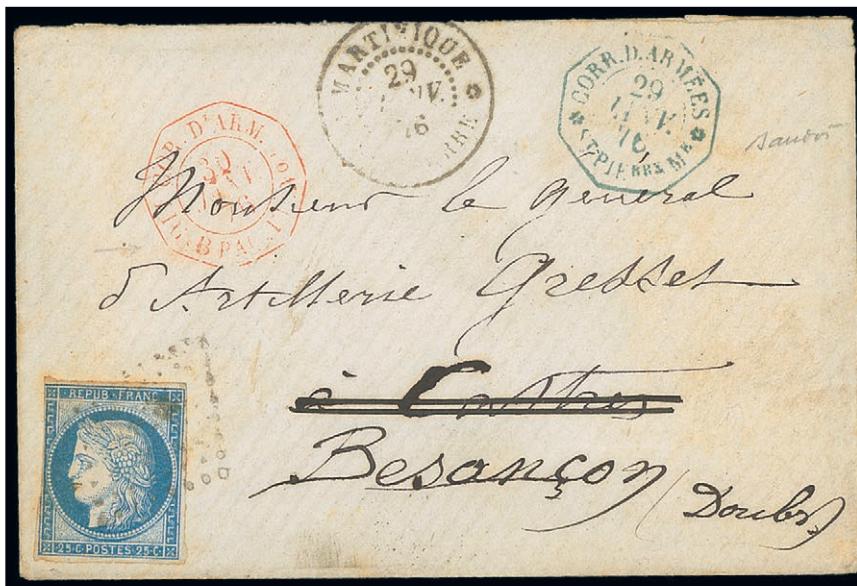 MARTINIQUE
29
76
CORR. D. ARMÉES
29
JANV.
76
ST PIERRE M.
COR. D'ARM.
30
Monsieur le général
d'Artillerie Gresset
à Castres
Besançon (Doubs)
REPUB. FRANC.
25 C. POSTES 25 C.